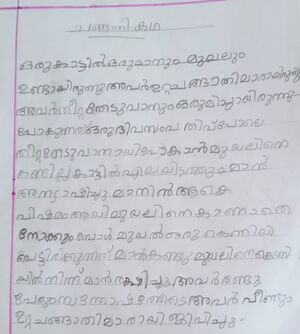 ചങ്ങാനി കഥ
ഒരു കാട്ടിൽ ഒരു മാനും മുയലും
ഉണ്ടായിരുന്നു അവർ ഉറ്റ ചങ്ങാതിമാരായിരുന്നു
അവർ തീറ്റ തേടുവാനും ഒരുമിച്ചായിരുന്നു
പോകുന്നത് ഒരു ദിവസം പതിവ് പോലെ
തീറ്റ തേടുവാനായി പോകാൻ മുയലിനെ
കണ്ടില്ല കാട്ടിൽ എല്ലായിടത്തും മാൻ
അന്വേഷിച്ചു മാനിന് ആകെ
വിഷമം ആയി മുയലിനെ കാണാതെ
നോക്കും ബോൾ മുയൽ ഒരു കെണിയി
പെട്ടിരിക്കുന്നത് മാൻ കണ്ടു മുയലിനെ കെണി
യിൽ നിന്ന് മാൻ രക്ഷിച്ചു അവർ രണ്ടു
പേരും സന്തോഷത്തോടെ അവർ വീണ്ടും
ഉറ്റ ചങ്ങാതിമാരായി ജീവിച്ചു.